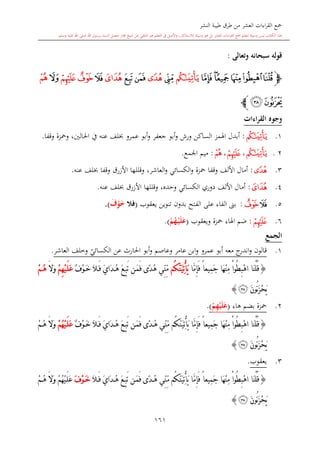 جمع القراءات العشر من طرق طيبة النشر
قوله سبحانه وتعالى :
﴿ قُلْنَا اهْبِطُوا مِنْهَا جَمِيعًا فَإِمَّا يَأْتِيَنَّكُم مِّنِّي هُدًى فَمَن تَبِعَ هُدَايَ فَلَا خَوْفٌ عَلَيْهِمْ وَلَا هُمْ
يَحْزَنُونَ ﴿٣٨﴾ ﴾
وجوه القراءات
١. يَأْتِيَنَّكُم : أبدل الهمز الساكن ورش وأبو جعفر وأبو عمرو بخلف عنه في الحالين، وحمزة وقفا.
٢. يَأْتِيَنَّكُم، عَلَيْهِمْ، هُمْ : ميم الجمع.
٣. هُدًى : أمال الألف وقفا حمزة والكسائي والعاشر، وقللها الأزرق وقفا بخلف عنه.
٤. هُدَايَ : أمال الألف دوري الكسائي وحده، وقللها الأزرق بخلف عنه.
٥. فَلَا خَوْفٌ : بنى الفاء على الفتح بدون تنوين يعقوب (فلا خَوْفَ).
٦. عَلَيْهِمْ : ضم الهاء حمزة ويعقوب (عَلَيْهُمْ).
الجمع
١. قالون واندرج معه أبو عمرو وابن عامر وعاصم وأبو الحارث عن الكسائيّ وخلف العاشر.
﴿ قُلْنَا اهْبِطُوا مِنْهَا جَمِيعًا فَإِمَّا يَأْتِيَنَّكُم مِّنِّي هُدًى فَمَن تَبِعَ هُدَايَ فَلَا خَوْفٌ عَلَيْهِمْ وَلَا هُمْ
يَحْزَنُونَ ﴿٣٨﴾
٢. حمزة بضم هاء (عَلَيْهُمْ).
﴿ قُلْنَا اهْبِطُوا مِنْهَا جَمِيعًا فَإِمَّا يَأْتِيَنَّكُم مِّنِّي هُدًى فَمَن تَبِعَ هُدَايَ فَلَا خَوْفٌ عَلَيْهُمْ وَلَا هُمْ
يَحْزَنُونَ ﴿٣٨﴾
٣. يعقوب.
﴿ قُلْنَا اهْبِطُوا مِنْهَا جَمِيعًا فَإِمَّا يَأْتِيَنَّكُم مِّنِّي هُدًى فَمَن تَبِعَ هُدَايَ فَلَا خَوْفَ عَلَيْهُمْ وَلَا هُمْ
يَحْزَنُونَ ﴿٣٨﴾
١٦١